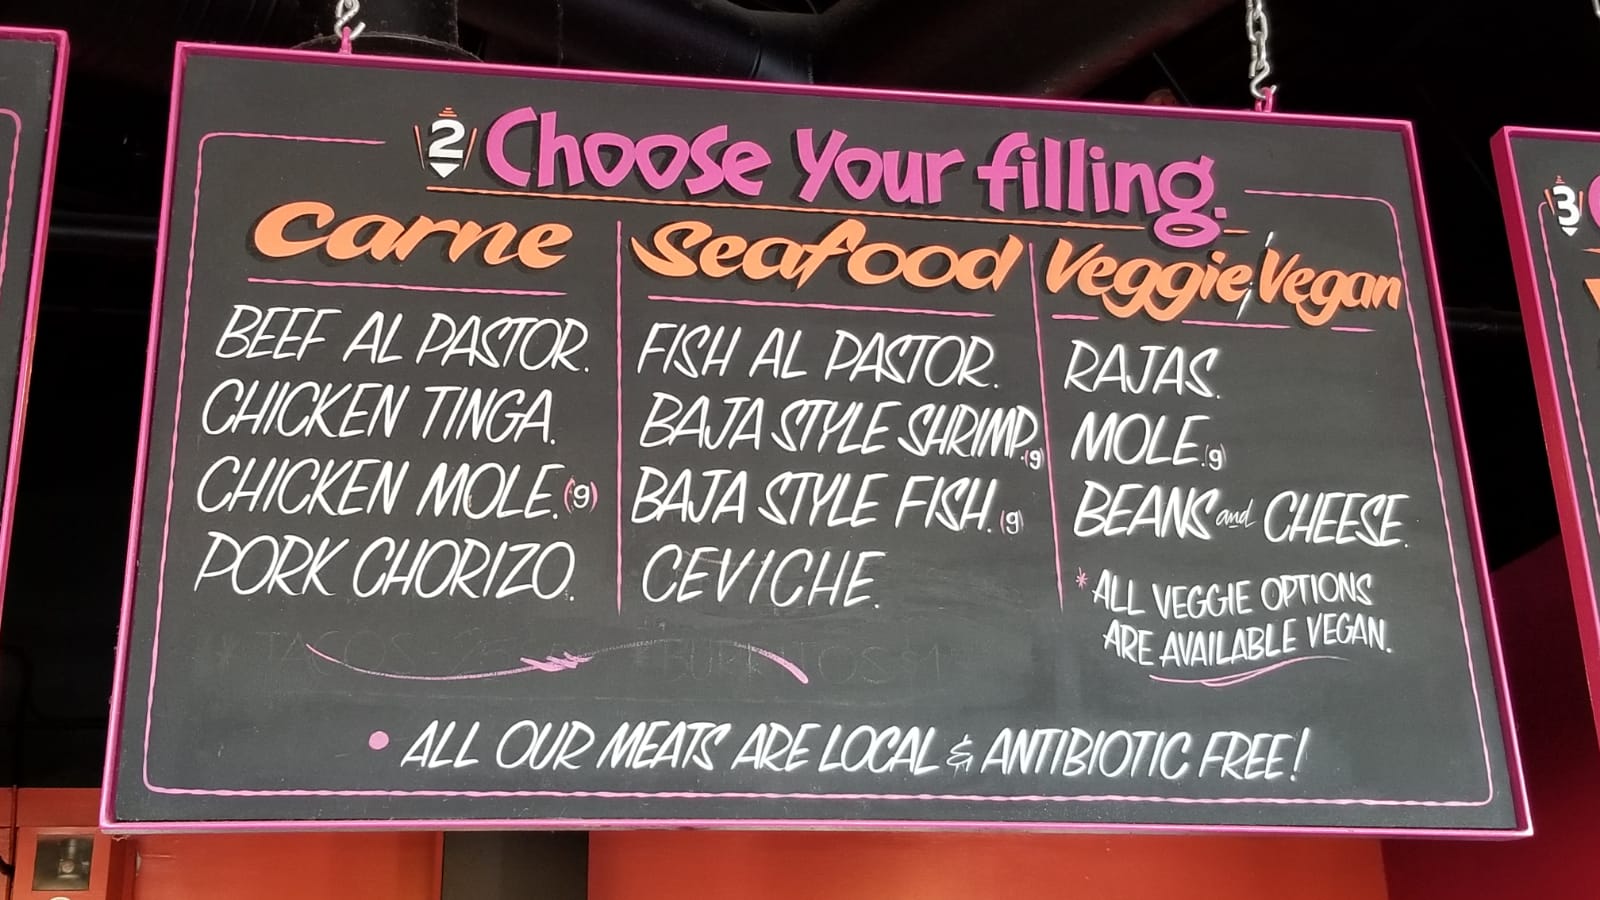 2 Choose Your filling.
Carne
BEEF AL PASTOR.
CHICKEN TINGA.
CHICKEN MOLE. (g)
PORK CHORIZO.
Seafood
FISH AL PASTOR.
BAJA STYLE SHRIMP. (g)
BAJA STYLE FISH. (g)
CEVICHE.
Veggie/Vegan
RAJAS.
MOLE. (g)
BEANS and CHEESE.
* ALL VEGGIE OPTIONS
ARE AVAILABLE VEGAN.
TACOS BURRITOS
• ALL OUR MEATS ARE LOCAL & ANTIBIOTIC FREE!
3